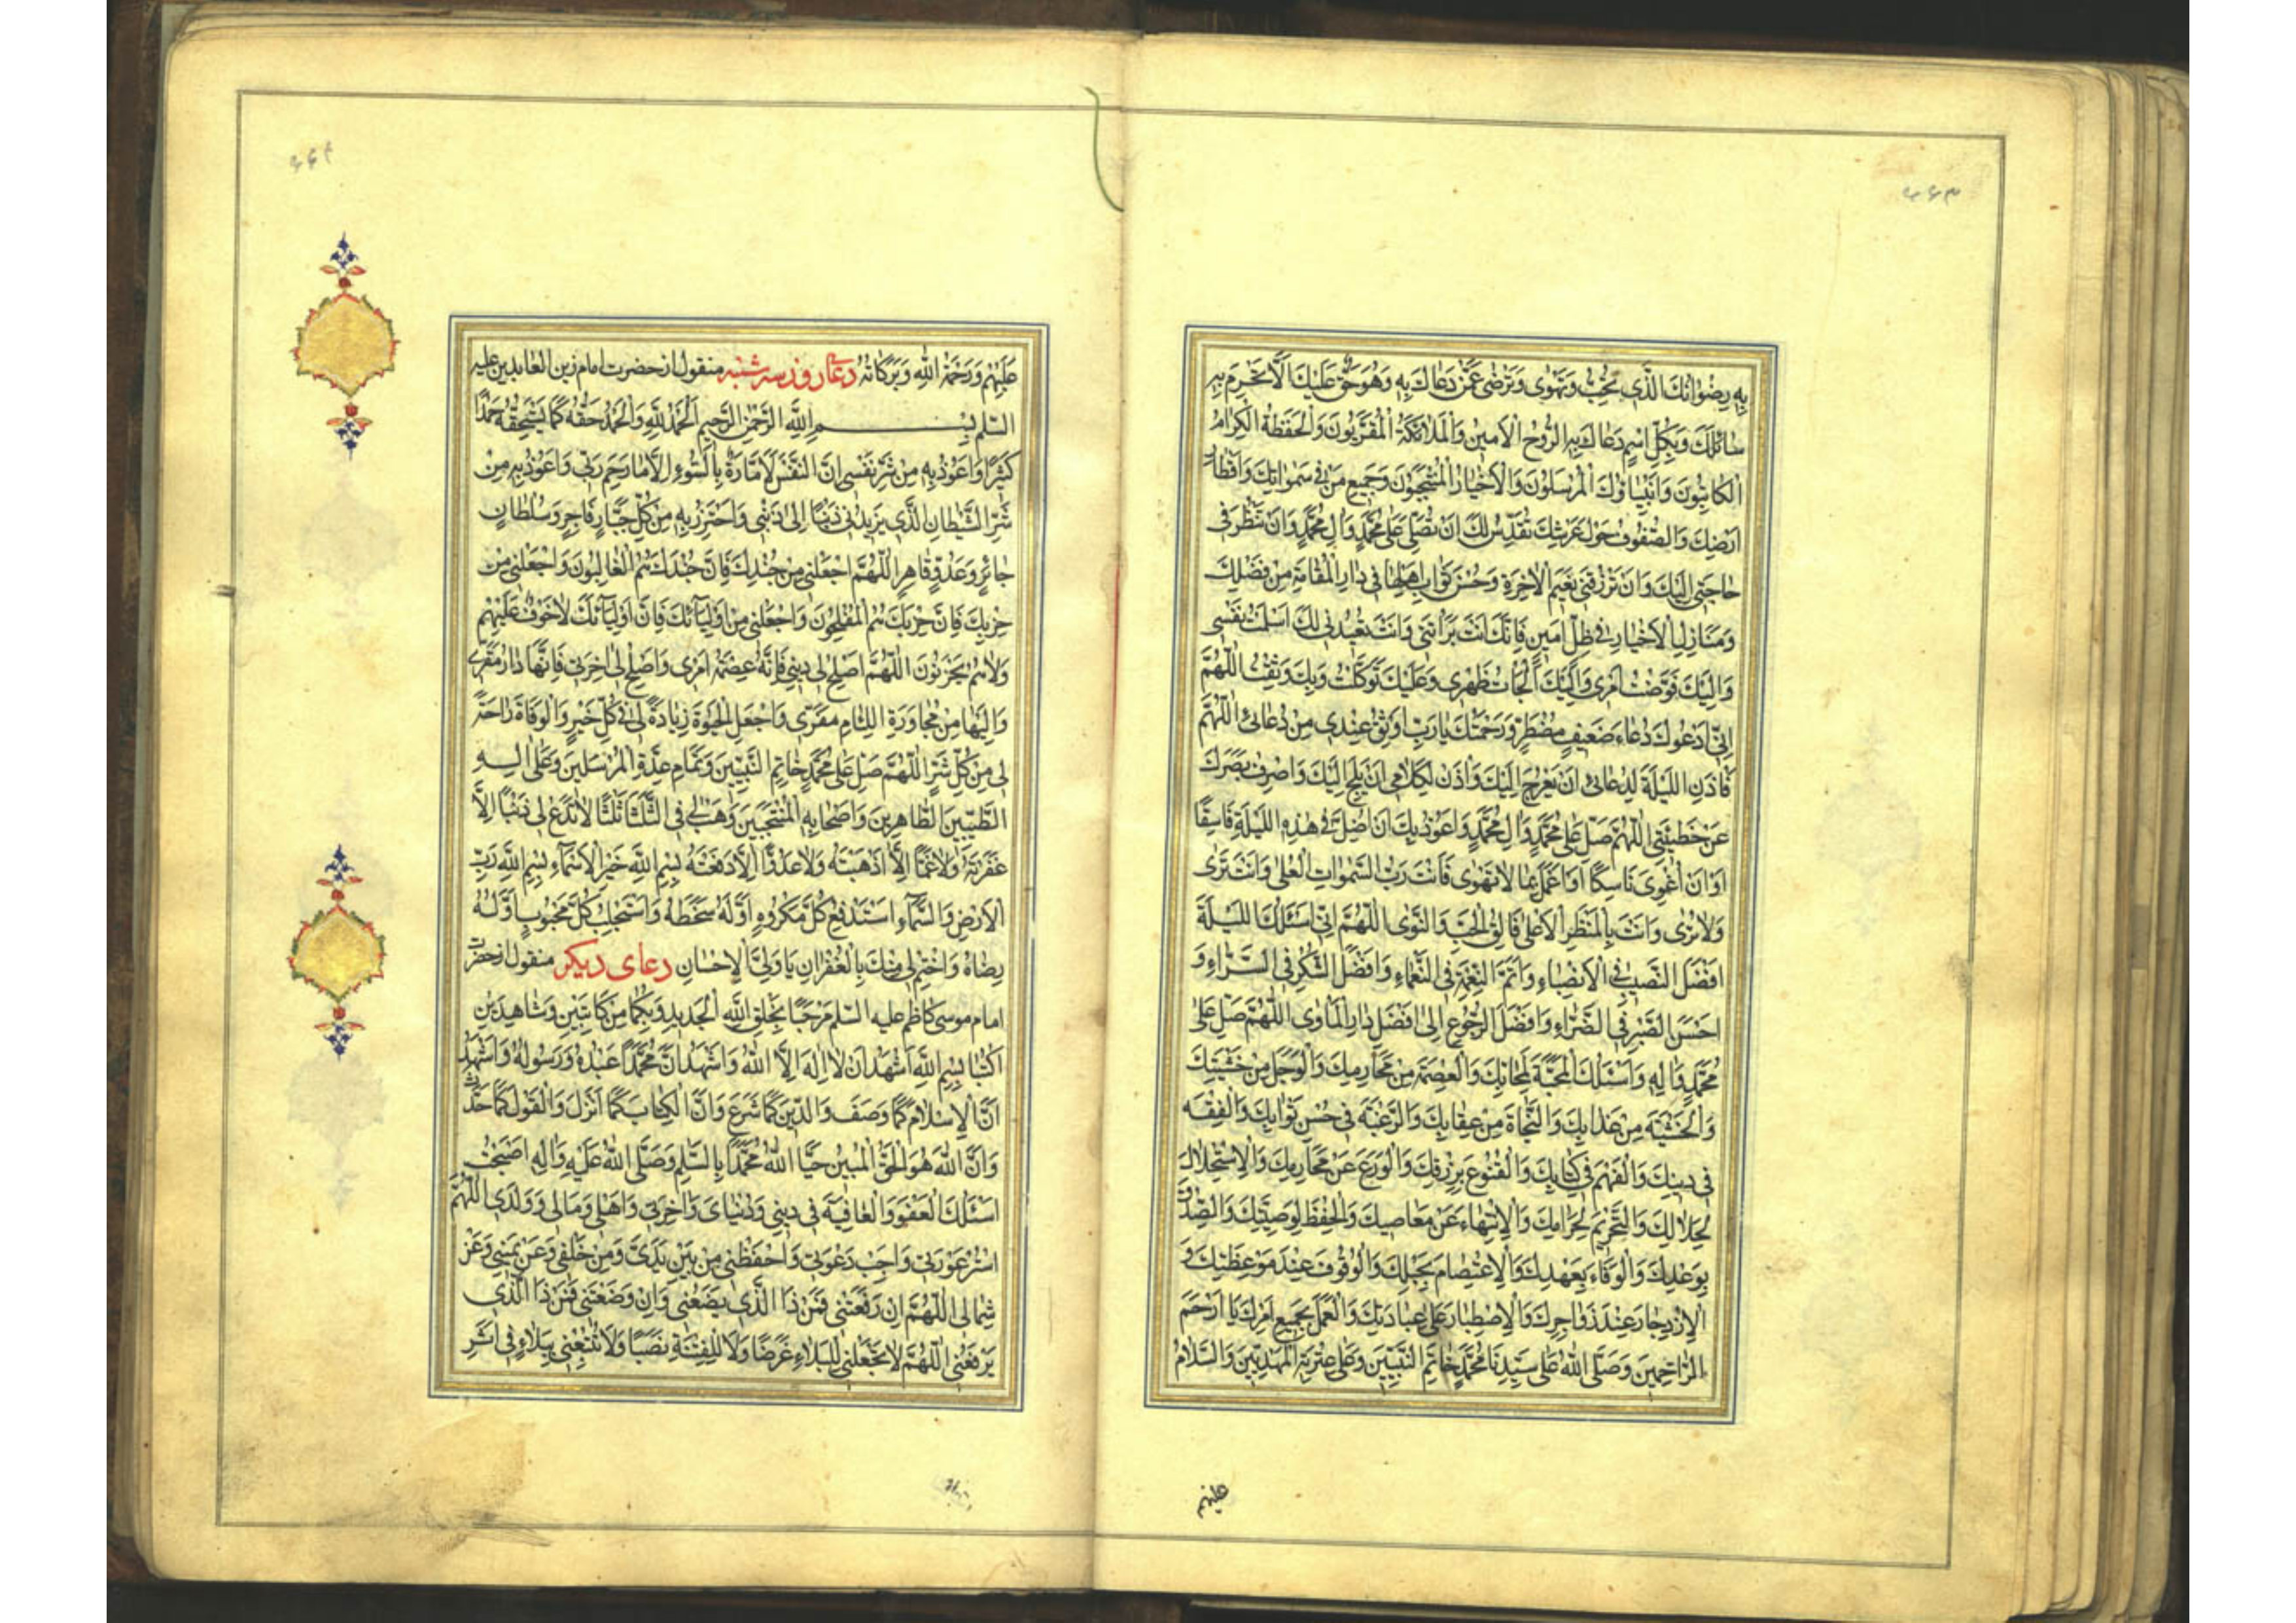 ۶۶۳
بِهِ رِضْوَانَكَ الَّذِي تُحِبُّ وَتَهْوٰى وَتَرْضٰى عَمَّنْ دَعَاكَ بِهِ وَهُوَ حَقٌّ عَلَيْكَ اَلَّا تَحْرِمَ بِهِ
سَائِلَكَ وَبِكُلِّ اسْمٍ دَعَاكَ بِهِ الرُّوحُ الْاَمِينُ وَالْمَلَائِكَةُ الْمُقَرَّبُونَ وَالْحَفَظَةُ الْكِرَامُ
الْكَاتِبُونَ وَاَنْبِيَاؤُكَ الْمُرْسَلُونَ وَالْاَخْيَارُ الْمُنْتَجَبُونَ وَجَمِيعُ مَنْ فِي سَمٰوَاتِكَ وَاَقْطَارِ
اَرْضِكَ وَالصُّفُوفُ حَوْلَ عَرْشِكَ تُقَدِّسُ لَكَ اَنْ تُصَلِّيَ عَلٰى مُحَمَّدٍ وَاٰلِ مُحَمَّدٍ وَاَنْ تَنْظُرَ فِي
حَاجَتِي اِلَيْكَ وَاَنْ تَرْزُقَنِي نَعِيمَ الْاٰخِرَةِ وَحُسْنَ ثَوَابِ اَهْلِهَا فِي دَارِ الْمُقَامَةِ مِنْ فَضْلِكَ
وَمَنَازِلِ الْاَخْيَارِ فِي ظِلٍّ اَمِينٍ فَاِنَّكَ اَنْتَ بَرَأْتَنِي وَاَنْتَ تُعِيدُنِي لَكَ اَسْلَمْتُ نَفْسِي
وَاِلَيْكَ فَوَّضْتُ اَمْرِي وَاِلَيْكَ اَلْجَأْتُ ظَهْرِي وَعَلَيْكَ تَوَكَّلْتُ وَبِكَ وَثِقْتُ اَللّٰهُمَّ
اِنِّي اَدْعُوكَ دُعَاءَ ضَعِيفٍ مُضْطَرٍّ وَرَحْمَتُكَ يَا رَبِّ اَوْثَقُ عِنْدِي مِنْ دُعَائِي اَللّٰهُمَّ
فَأْذَنِ اللَّيْلَةَ لِدُعَائِي اَنْ يَعْرُجَ اِلَيْكَ وَاْذَنْ لِكَلَامِي اَنْ يَلِجَ اِلَيْكَ وَاصْرِفْ بَصَرَكَ
عَنْ خَطِيئَتِي اَللّٰهُمَّ صَلِّ عَلٰى مُحَمَّدٍ وَاٰلِ مُحَمَّدٍ وَاَعُوذُ بِكَ اَنْ اَضِلَّ فِي هٰذِهِ اللَّيْلَةِ فَاسِقًا
اَوْ اَنْ اَغْوِيَ نَاسِكًا اَوْ اَعْمَلَ بِمَا لَا تَهْوٰى فَاَنْتَ رَبُّ السَّمٰوَاتِ الْعُلٰى وَاَنْتَ تَرٰى
وَلَا تُرٰى وَاَنْتَ بِالْمَنْظَرِ الْاَعْلٰى فَالِقُ الْحَبِّ وَالنَّوٰى اَللّٰهُمَّ اِنِّي اَسْئَلُكَ اللَّيْلَةَ
اَفْضَلَ النَّصِيبِ فِي الْاَنْصِبَاءِ وَاَتَمَّ النِّعْمَةِ فِي النَّعْمَاءِ وَاَفْضَلَ الشُّكْرِ فِي السَّرَّاءِ وَ
اَحْسَنَ الصَّبْرِ فِي الضَّرَّاءِ وَاَفْضَلَ الرُّجُوعِ اِلٰى اَفْضَلِ دَارِ الْمَأْوٰى اَللّٰهُمَّ صَلِّ عَلٰى
مُحَمَّدٍ وَاٰلِهِ وَاَسْئَلُكَ الْمَحَبَّةَ لِمَحَابِّكَ وَالْعِصْمَةَ مِنْ مَحَارِمِكَ وَالْوَجَلَ مِنْ خَشْيَتِكَ
وَالْخَشْيَةَ مِنْ عَذَابِكَ وَالنَّجَاةَ مِنْ عِقَابِكَ وَالرَّغْبَةَ فِي حُسْنِ ثَوَابِكَ وَالْفِقْهَ
فِي دِينِكَ وَالْفَهْمَ فِي كِتَابِكَ وَالْقُنُوعَ بِرِزْقِكَ وَالْوَرَعَ عَنْ مَحَارِمِكَ وَالْاِسْتِحْلَالَ
لِحَلَالِكَ وَالتَّحْرِيمَ لِحَرَامِكَ وَالْاِنْتِهَاءَ عَنْ مَعَاصِيكَ وَالْحِفْظَ لِوَصِيَّتِكَ وَالصِّدْقَ
بِوَعْدِكَ وَالْوَفَاءَ بِعَهْدِكَ وَالْاِعْتِصَامَ بِحَبْلِكَ وَالْوُقُوفَ عِنْدَ مَوْعِظَتِكَ وَ
الْاِزْدِجَارَ عِنْدَ زَوَاجِرِكَ وَالْاِصْطِبَارَ عَلٰى عِبَادَتِكَ وَالْعَمَلَ بِجَمِيعِ اَمْرِكَ يَا اَرْحَمَ
الرَّاحِمِينَ وَصَلَّى اللّٰهُ عَلٰى سَيِّدِنَا مُحَمَّدٍ خَاتَمِ النَّبِيِّينَ وَعَلٰى عِتْرَتِهِ الْمَهْدِيِّينَ وَالسَّلَامُ
عليهم
۶۶۴
عَلَيْهِمْ وَرَحْمَةُ اللّٰهِ وَبَرَكَاتُهُ دعای روز سه شنبه منقول از حضرت امام زین العابدین علیه
السلم بِسْمِ اللّٰهِ الرَّحْمٰنِ الرَّحِيمِ اَلْحَمْدُ لِلّٰهِ وَالْحَمْدُ حَقُّهُ كَمَا يَسْتَحِقُّهُ حَمْدًا
كَثِيرًا وَاَعُوذُ بِهِ مِنْ شَرِّ نَفْسِي اِنَّ النَّفْسَ لَاَمَّارَةٌ بِالسُّوءِ اِلَّا مَا رَحِمَ رَبِّي وَاَعُوذُ بِهِ مِنْ
شَرِّ الشَّيْطَانِ الَّذِي يَزِيدُنِي ذَنْبًا اِلٰى ذَنْبِي وَاَحْتَرِزُ بِهِ مِنْ كُلِّ جَبَّارٍ فَاجِرٍ وَسُلْطَانٍ
جَائِرٍ وَعَدُوٍّ قَاهِرٍ اَللّٰهُمَّ اجْعَلْنِي مِنْ جُنْدِكَ فَاِنَّ جُنْدَكَ هُمُ الْغَالِبُونَ وَاجْعَلْنِي مِنْ
حِزْبِكَ فَاِنَّ حِزْبَكَ هُمُ الْمُفْلِحُونَ وَاجْعَلْنِي مِنْ اَوْلِيَآئِكَ فَاِنَّ اَوْلِيَآئَكَ لَا خَوْفٌ عَلَيْهِمْ
وَلَا هُمْ يَحْزَنُونَ اَللّٰهُمَّ اَصْلِحْ لِي دِينِي فَاِنَّهُ عِصْمَةُ اَمْرِي وَاَصْلِحْ لِي اٰخِرَتِي فَاِنَّهَا دَارُ مَقَرِّي
وَاِلَيْهَا مِنْ مُجَاوَرَةِ اللِّئَامِ مَفَرِّي وَاجْعَلِ الْحَيٰوةَ زِيَادَةً لِي فِي كُلِّ خَيْرٍ وَالْوَفَاةَ رَاحَةً
لِي مِنْ كُلِّ شَرٍّ اَللّٰهُمَّ صَلِّ عَلٰى مُحَمَّدٍ خَاتَمِ النَّبِيِّينَ وَتَمَامِ عِدَّةِ الْمُرْسَلِينَ وَعَلٰى اٰلِهِ
الطَّيِّبِينَ الطَّاهِرِينَ وَاَصْحَابِهِ الْمُنْتَجَبِينَ وَهَبْ لِي فِي الثَّلٰثَاءِ ثَلٰثًا لَا تَدَعْ لِي ذَنْبًا اِلَّا
غَفَرْتَهُ وَلَا غَمًّا اِلَّا اَذْهَبْتَهُ وَلَا عَدُوًّا اِلَّا دَفَعْتَهُ بِسْمِ اللّٰهِ خَيْرِ الْاَسْمَآءِ بِسْمِ اللّٰهِ رَبِّ
الْاَرْضِ وَالسَّمَآءِ اَسْتَدْفِعُ كُلَّ مَكْرُوهٍ اَوَّلُهُ سَخَطُهُ وَاَسْتَجْلِبُ كُلَّ مَحْبُوبٍ اَوَّلُهُ
رِضَاهُ وَاخْتِمْ لِي مِنْكَ بِالْغُفْرَانِ يَا وَلِيَّ الْاِحْسَانِ دعای دیگر منقول از حضرت
امام موسی کاظم علیه السلم مَرْحَبًا بِخَلْقِ اللّٰهِ الْجَدِيدِ وَبِكُمَا مِنْ كَاتِبَيْنِ وَشَاهِدَيْنِ
اُكْتُبَا بِسْمِ اللّٰهِ اَشْهَدُ اَنْ لَا اِلٰهَ اِلَّا اللّٰهُ وَاَشْهَدُ اَنَّ مُحَمَّدًا عَبْدُهُ وَرَسُولُهُ وَاَشْهَدُ
اَنَّ الْاِسْلَامَ كَمَا وَصَفَ وَالدِّينَ كَمَا شَرَعَ وَاَنَّ الْكِتَابَ كَمَا اَنْزَلَ وَالْقَوْلَ كَمَا حَدَّثَ
وَاَنَّ اللّٰهَ هُوَ الْحَقُّ الْمُبِينُ حَيَّا اللّٰهُ مُحَمَّدًا بِالسَّلٰمِ وَصَلَّى اللّٰهُ عَلَيْهِ وَاٰلِهِ اَصْبَحْتُ
اَسْئَلُكَ الْعَفْوَ وَالْعَافِيَةَ فِي دِينِي وَدُنْيَايَ وَاٰخِرَتِي وَاَهْلِي وَمَالِي وَوَلَدِي اَللّٰهُمَّ
اسْتُرْ عَوْرَتِي وَاَجِبْ دَعْوَتِي وَاحْفَظْنِي مِنْ بَيْنِ يَدَيَّ وَمِنْ خَلْفِي وَعَنْ يَمِينِي وَعَنْ
شِمَالِي اَللّٰهُمَّ اِنْ رَفَعْتَنِي فَمَنْ ذَا الَّذِي يَضَعُنِي وَاِنْ وَضَعْتَنِي فَمَنْ ذَا الَّذِي
يَرْفَعُنِي اَللّٰهُمَّ لَا تَجْعَلْنِي لِلْبَلَاءِ غَرَضًا وَلَا لِلْفِتْنَةِ نَصَبًا وَلَا تُتْبِعْنِي بِبَلَاءٍ فِي اَثَرِ